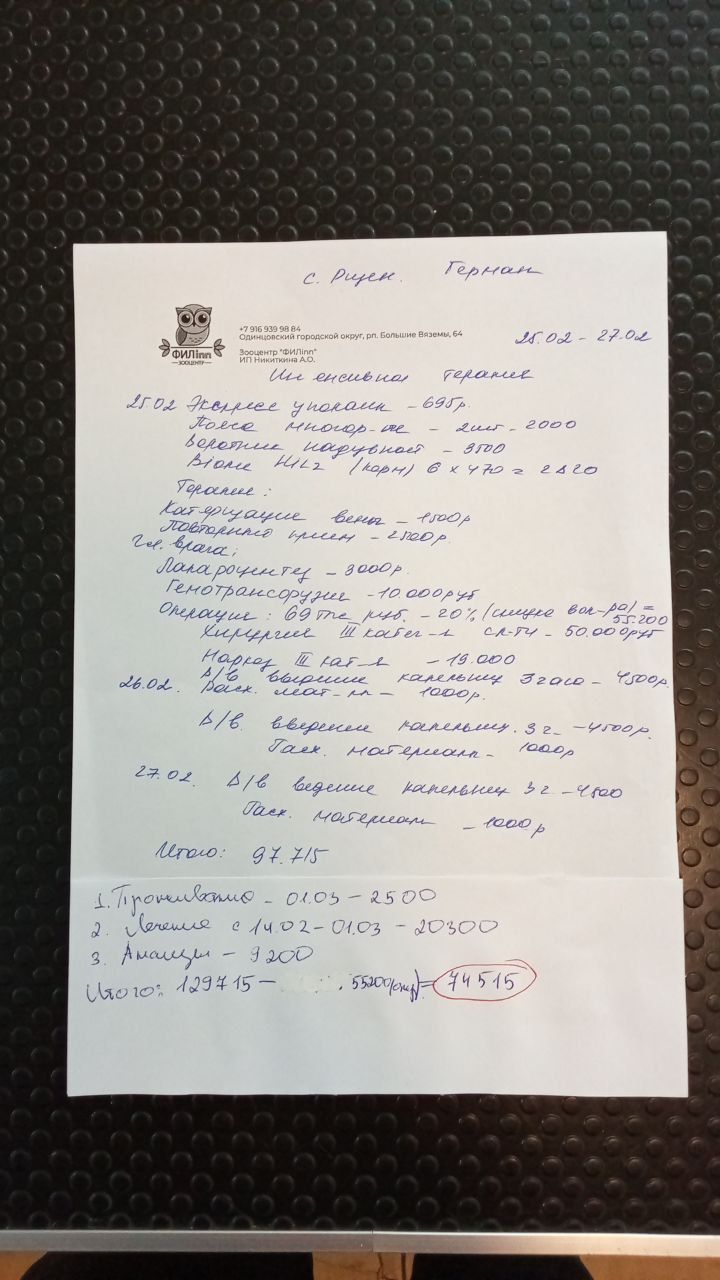 с. Рщен. Герман
ФИЛinn
ЗООЦЕНТР
+7 916 939 98 84
Одинцовский городской округ, рп. Большие Вяземы, 64
Зооцентр "ФИЛinn"
ИП Никиткина А.О.
25.02 - 27.02
Интенсивная терапия
25.02 Экспресс - 695р.
Пояса - 2шт - 2000
Воротник надувной - 3500
Biome Hill2 (корм) 6 x 470 = 2820
Терапия:
Катетризация вены - 1500р
Повторный прием - 2500р.
Гл. врача:
Лапароцентез - 3000р.
Гемотрансфузия - 10.000руб
Операция: 69 тыс руб. - 20% (скидка вол-ра) =
55.200
Хирургия III катег-и сл-ти - 50.000руб
Наркоз III кат-и - 19.000
В/в введение капельниц 3 часа - 4500р.
26.02. Расх. мат-лы - 1000р.
В/в. введение капельниц. 3 ч. - 4500р.
Расх. материалы - 1000р
27.02. В/в ведение капельниц 3 ч. - 4500
Расх. материалы - 1000р
Итого: 97.715
1. Проживание - 01.03 - 2500
2. Лечение с 14.02 - 01.03 - 20300
3. Анализы - 9200
Итого: 129715 - 55200 = 74515